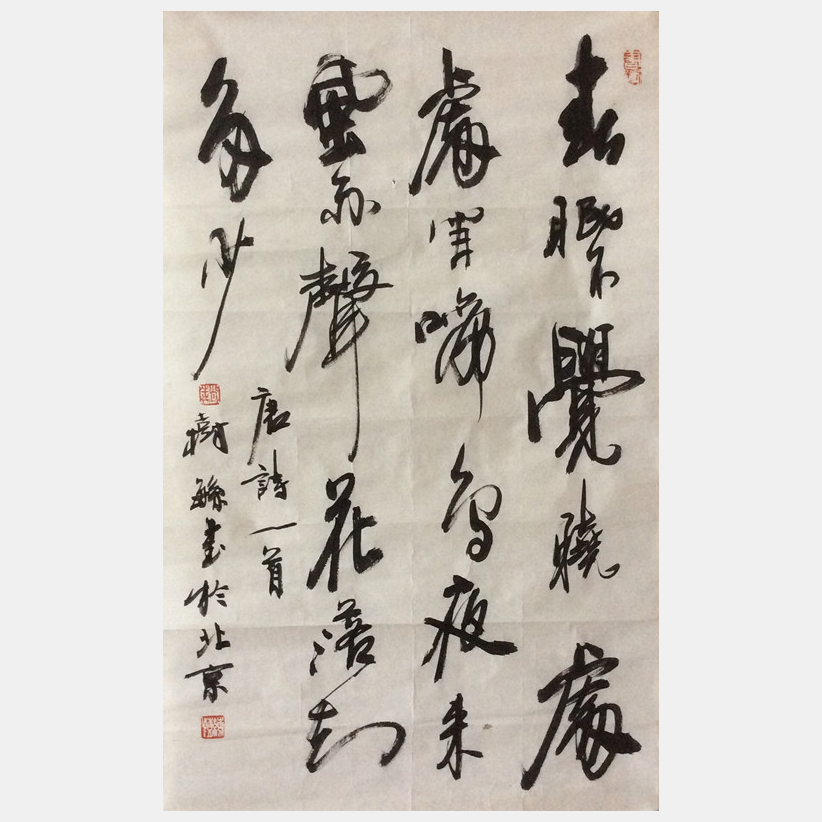 春眠不覺曉處
處聞啼鳥夜来
風雨聲花落知
多少
唐詩一首
樹書於北京